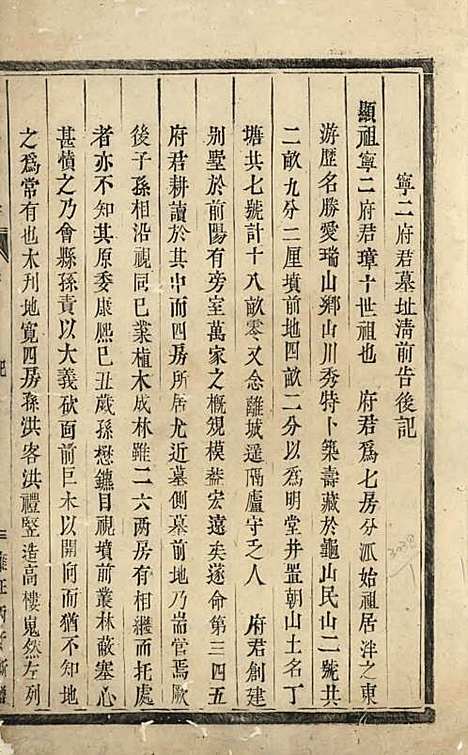 寧二府君墓址淸前告後記
顯祖寧二府君璋十世祖也　府君爲七房分派始祖居泮之東
游歷名勝愛瑞山鄉山川秀特卜築壽藏於龜山民山二號共
二畝九分二厘墳前地四畝二分以爲明堂并置朝山土名丁
塘共七號計十八畝零又念離城遥隔廬守乏人　府君創建
别墅於前陽有旁室萬家之概規模葢宏遠矣遂命第三四五
府君耕讀於其中而四房所居尤近墓側墓前地乃耑管焉厥
後子孫相沿視同已業植木成林雖二六兩房有相繼而托處
者亦不知其原委康熈巳丑歲孫懋鑣目視墳前叢林蔽塞心
甚憤之乃會縣孫責以大義砍面前巨木以開向而猶不知地
之爲常有也太刋地寬四房孫洪客洪禮竪造高樓嵬然左列
記
雍正丙